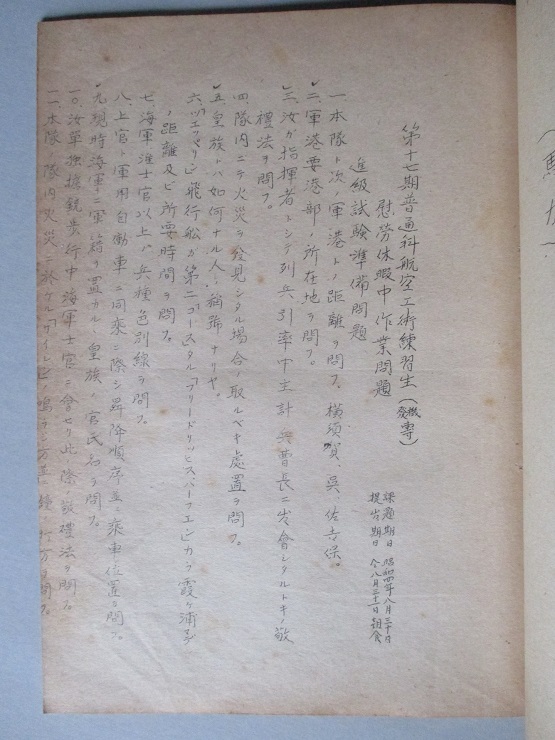 第十七期普通科航空工術練習生（機専）
慰労休暇中作業問題
課題期日 昭和四年八月二十日
提出期日 仝八月三十一日朝食
進級試験準備問題
一、本隊ト次ノ軍港トノ距離ヲ問フ。横須賀、呉、佐世保。
二、軍港要港部ノ所在地ヲ問フ。
三、汝ガ指揮者トシテ列兵引率中主計兵曹長ニ出會シタルトキノ敬
禮法ヲ問フ。
四、隊内ニテ火災ヲ発見シタル場合ノ取ルベキ處置ヲ問フ。
五、皇族トハ如何ナル人ノ稱號ナリヤ。
六、「ツェッペリン」飛行船ガ第二コースタル「フリードリッヒスハーフェン」ヨリ霞ヶ浦
ノ距離及ビ所要時間ヲ問フ。
七、海軍准士官以上ノ兵種色別線ヲ問フ。
八、上官ト軍用自動車ニ同乗ニ際シ昇降順序並ニ乗車位置ヲ問フ。
九、現時海軍ニ軍籍ヲ置カルル皇族ノ官氏名ヲ問フ。
一〇、汝単独擔銃歩行中海軍士官ニ會セリ此ノ際ノ敬禮法ヲ問フ。
一一、本隊ノ隊内火災ニ於ケル